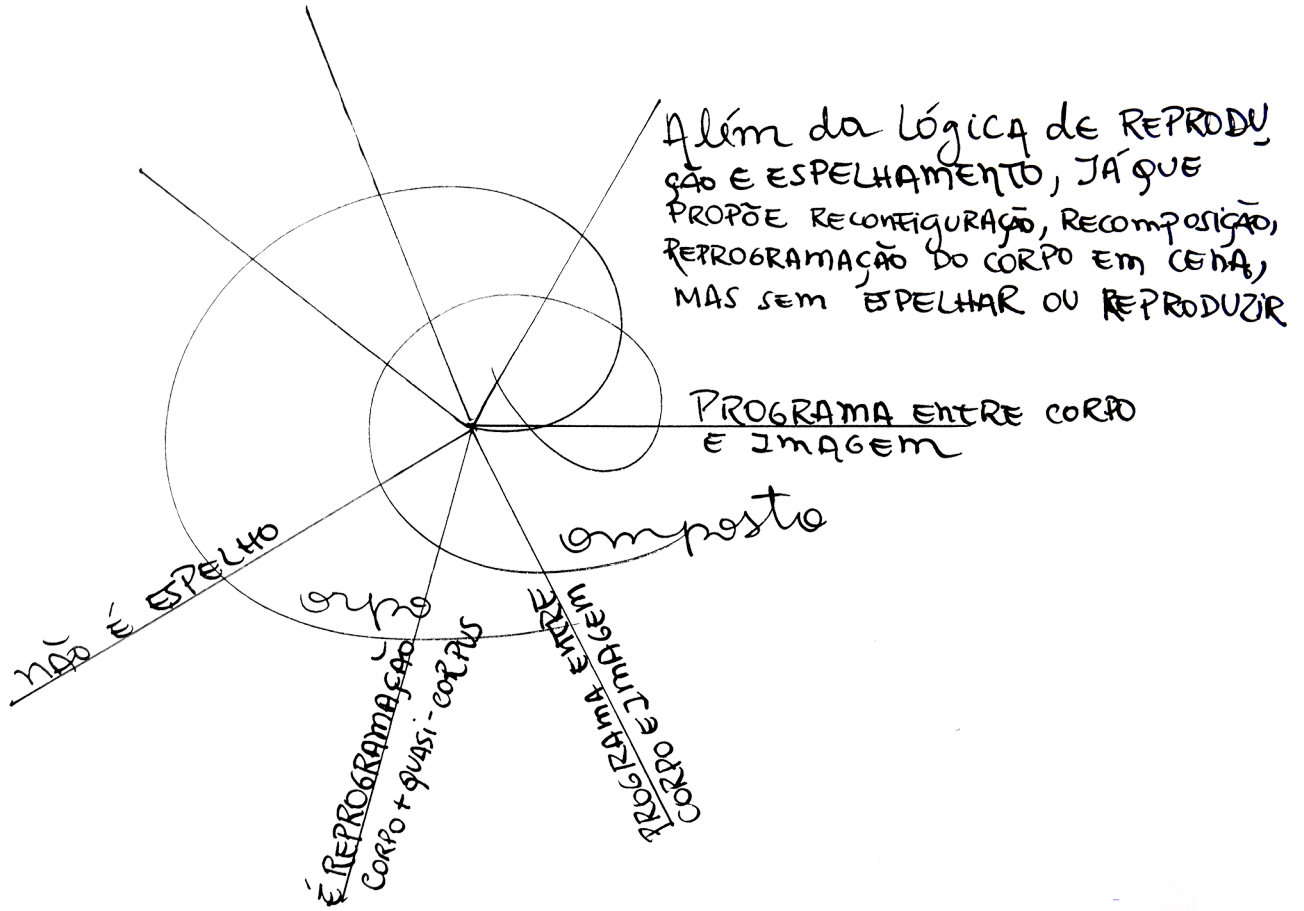 Além da Lógica de REPRODU
ÇÃO E ESPELHAMENTO, JÁ QUE
PROPÕE RECONFIGURAÇÃO, RECOMPOSIÇÃO,
REPROGRAMAÇÃO DO CORPO EM CENA,
MAS SEM ESPELHAR OU REPRODUZIR
PROGRAMA ENTRE CORPO
E IMAGEM
omposto
NÃO É ESPELHO
orpo
É REPROGRAMAÇÃO
CORPO + QUASI-CORPUS
PROGRAMA ENTRE
CORPO E IMAGEM